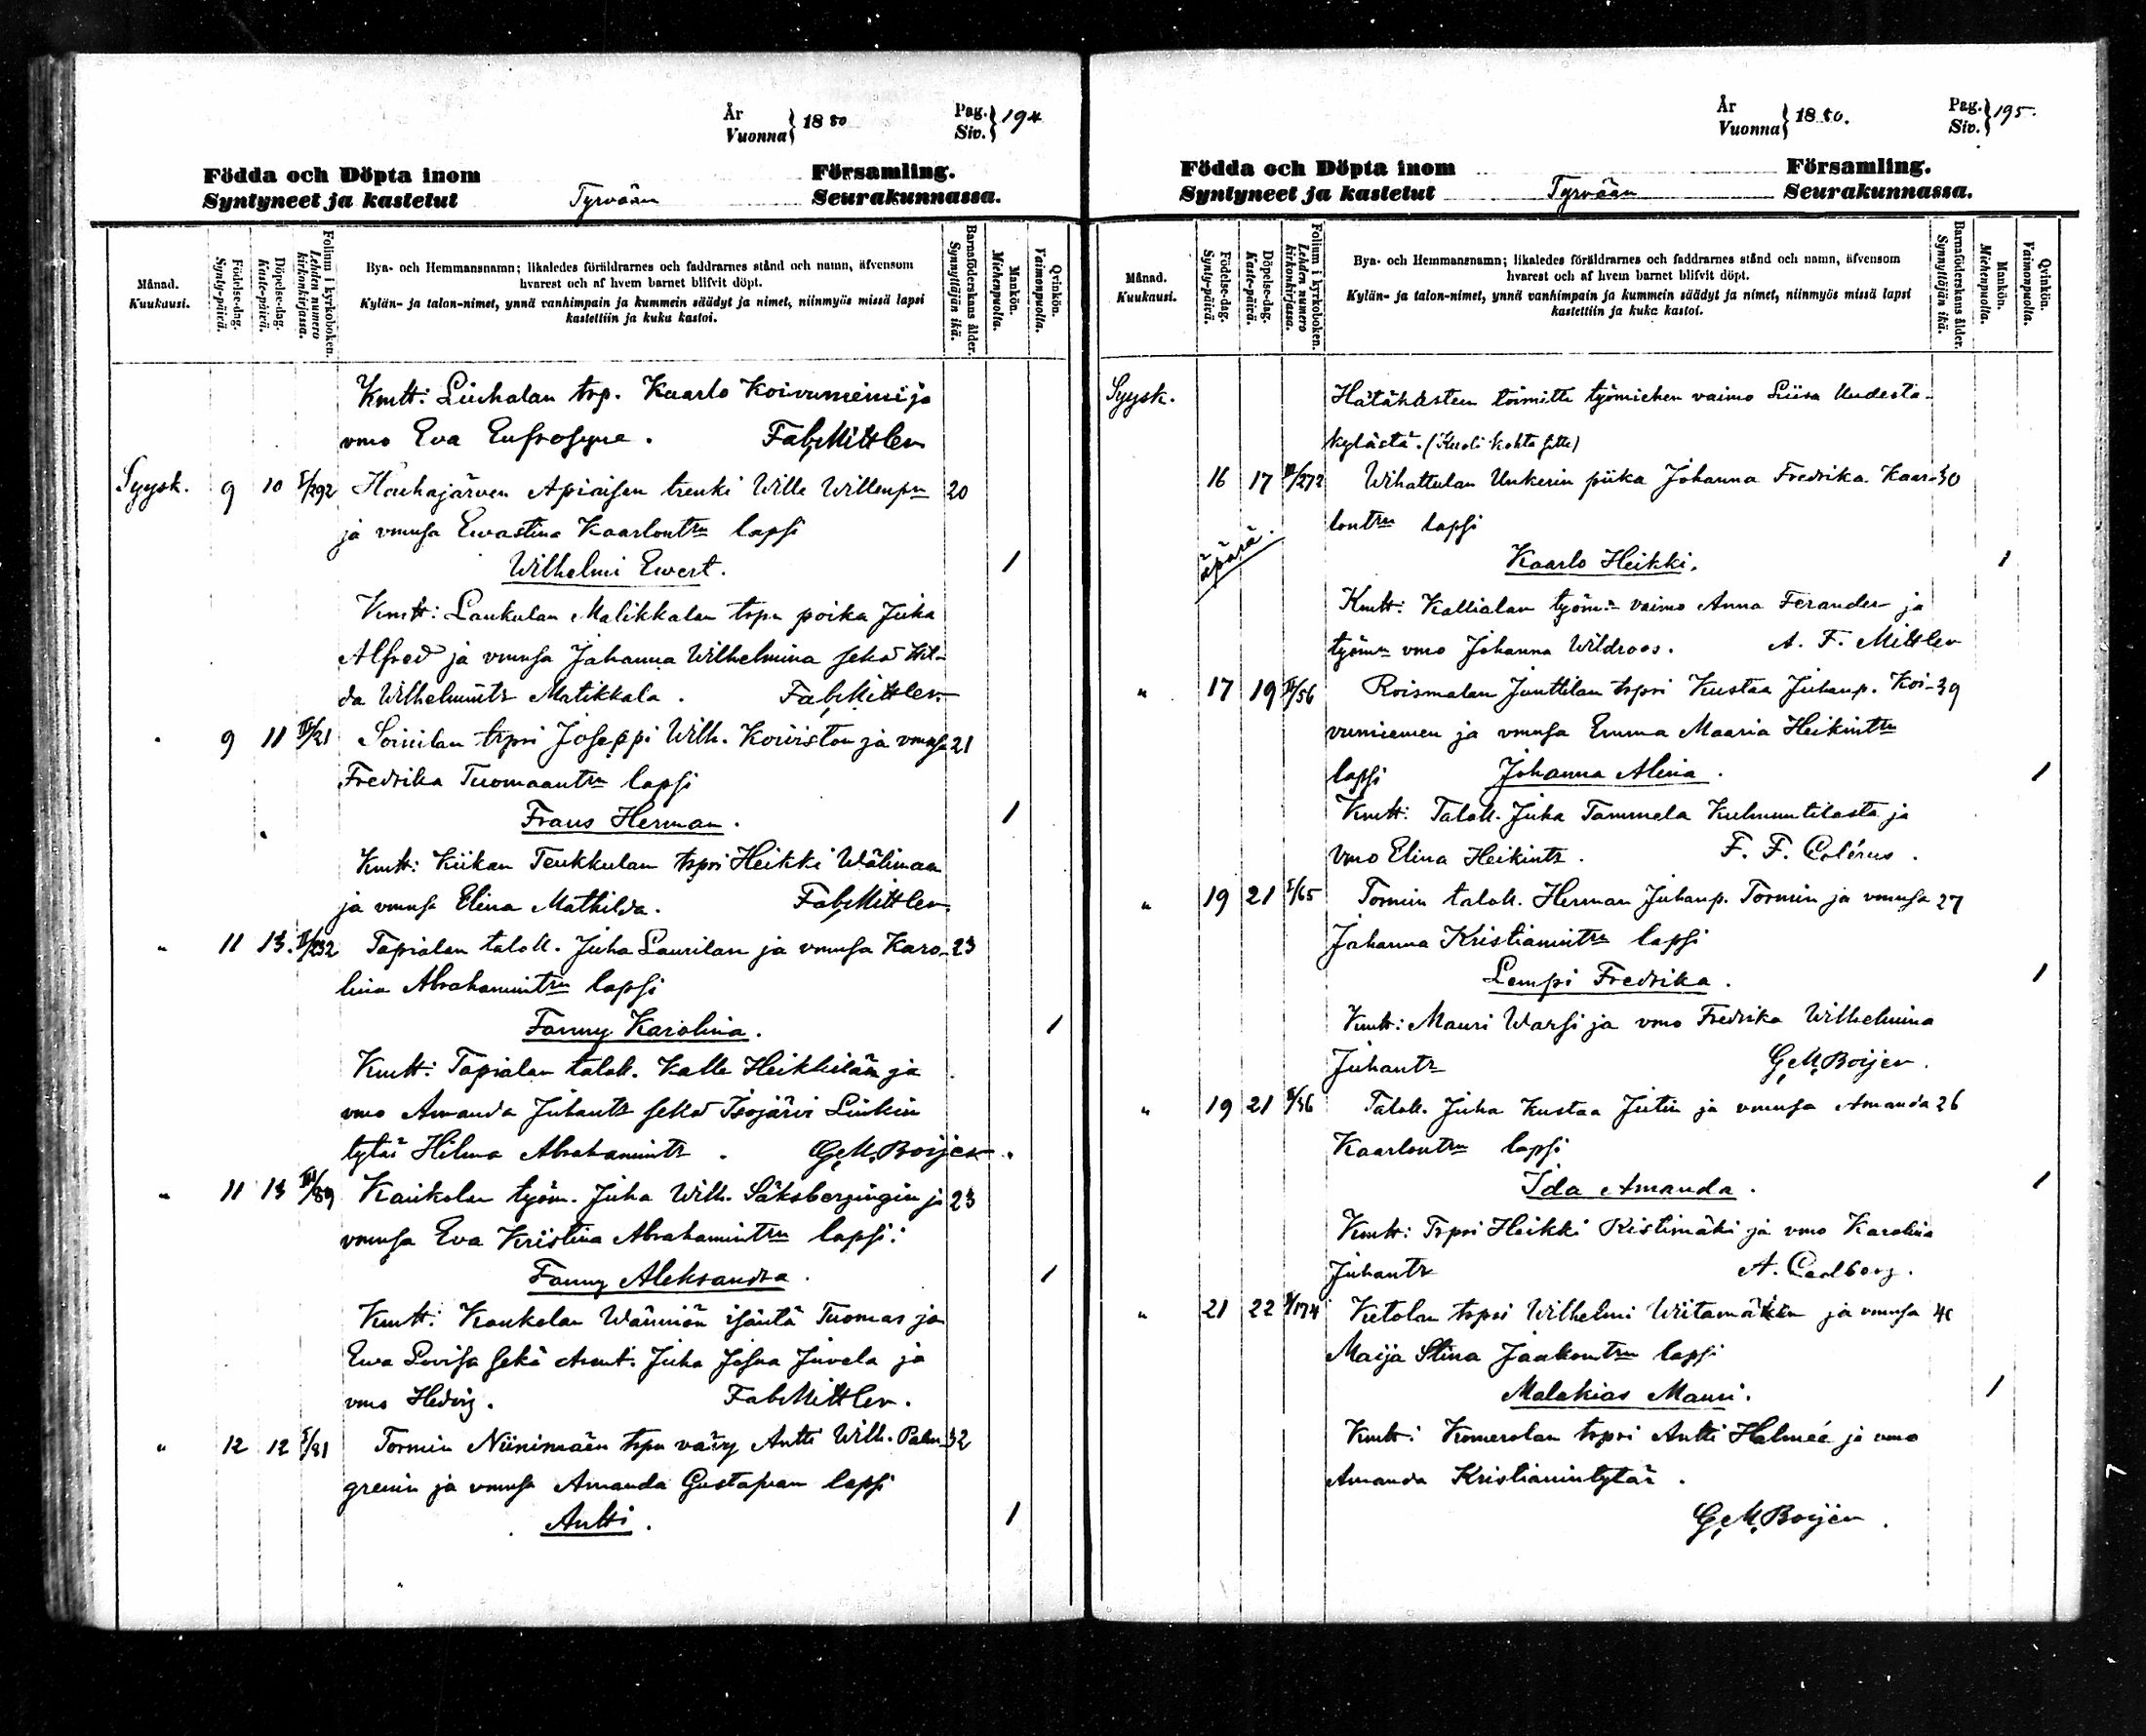 År
Vuonna } 1880
Pag.
Siv. } 194
Födda och Döpta inom Församling.
Syntyneet ja kastetut Tyrvään Seurakunnassa.
Månad.
Kuukausi.
Födelse-dag.
Synty-päivä.
Döpelse-dag.
Kaste-päivä.
Folium i kyrkoboken.
Lehden numero
kirkonkirjassa.
Bya- och Hemmansnamn; likaledes föräldrarnes och faddrarnes stånd och namn, äfvensom
hvarest och af hvem barnet blifvit döpt.
Kylän- ja talon-nimet, ynnä vanhimpain ja kummein säädyt ja nimet, niinmyös missä lapsi
kastettiin ja kuka kastoi.
Barnaföderskans ålder.
Synnyttäjän ikä.
Mankön.
Miehenpuolta.
Qvinkön.
Vaimonpuolta.
Kmtt: Liuhalan trp. Kaarlo Koivuniemi ja
vmo Eva Eufrosyne. Fab. Mittler
Syysk. 9 10 I/292 Houhajärven Apiaisen trenki Wille Willenpn 20
ja vmnsa Ewastina Kaarlontrn lapsi
Wilhelmi Ewert. 1
Kmtt: Laukulan Malikkalan trpn poika Juha
Alfred ja vmnsa Johanna Wilhelmina sekä Hil-
da Wilhelmintr Matikkala. Fab. Mittler
" 9 11 Soinilan trpri Joseppi Wilh. Koiviston ja vmnsa 21
Fredrika Tuomaantrn lapsi
Frans Herman. 1
Kmtt: Kiikan Teukkulan trpri Heikki Wälimaa
ja vmnsa Elina Mathilda. Fab. Mittler
" 11 13. II/232 Tapialan taloll. Juha Laurilan ja vmnsa Karo- 23
lina Abrahamintrn lapsi
Fanny Karolina. 1
Kmtt: Tapialan taloll. Kalle Heikkilän ja
vmo Amanda Juhantr sekä Isojärvi Liukin
tytär Hilma Abrahamintr. G. M. Boijer.
" 11 13 III/89 Kaukolan työm. Juha Wilh. Säksbergingin ja 23
vmnsa Eva Kristina Abrahamintrn lapsi:
Fanny Aleksandra. 1
Kmtt: Kaukolan Wänniön isäntä Tuomas ja
Ewa Lovisa sekä Juha Josua Juvela ja
vmo Hedvig. Fab. Mittler.
" 12 12 I/81 Tormin Niinimäen trpn vävy Antti Wilh. Palm- 32
grenin ja vmnsa Amanda Gustafvan lapsi
Antti. 1
År
Vuonna } 1880.
Pag.
Siv. } 195.
Födda och Döpta inom Församling.
Syntyneet ja kastetut Tyrvään Seurakunnassa.
Månad.
Kuukausi.
Födelse-dag.
Synty-päivä.
Döpelse-dag.
Kaste-päivä.
Folium i kyrkoboken.
Lehden numero
kirkonkirjassa.
Bya- och Hemmansnamn; likaledes föräldrarnes och faddrarnes stånd och namn, äfvensom
hvarest och af hvem barnet blifvit döpt.
Kylän- ja talon-nimet, ynnä vanhimpain ja kummein säädyt ja nimet, niinmyös missä lapsi
kastettiin ja kuka kastoi.
Barnaföderskans ålder.
Synnyttäjän ikä.
Mankön.
Miehenpuolta.
Qvinkön.
Vaimonpuolta.
Syysk. Hätäkasteen toimitti työmiehen vaimo Liisa Uudesta-
kylästä. (Kuoli kohta sitte)
16 17 II/272 Wihattulan Unkerin piika Johanna Fredrika Kaar- 30
lontrn lapsi
äpärä.
Kaarlo Heikki. 1
Kmtt: Kallialan työm:n vaimo Anna Ferander ja
työmn vmo Johanna Wildroos. A. F. Mittler
" 17 19 II/56 Roismalan Junttilan trpri Kustaa Juhanp. Koi- 39
vuniemen ja vmnsa Emma Maaria Heikintrn
lapsi Johanna Alina. 1
Kmtt: Taloll. Juha Tammela Kulmuntilasta ja
Vmo Elina Heikintr. F. F. Colérus.
" 19 21 I/65 Tormin taloll. Herman Juhanp. Tormin ja vmnsa 27
Johanna Kristianintrn lapsi
Lempi Fredrika. 1
Kmtt: Mauri Warsi ja vmo Fredrika Wilhelmina
Juhantr G. M. Boijer.
" 19 21 Taloll. Juha Kustaa Jutin ja vmnsa Amanda 26
Kaarlontrn lapsi
Ida Amanda. 1
Kmtt: Trpri Heikki Ristimäki ja vmo Karolina
Juhantr A. Carlborg.
" 21 22 Ketolan trpri Wilhelmi Wiitamäkiin ja vmnsa
Maija Stina Jaakontrn lapsi
Malakias Mauri. 1
Kmtt: Komerolan trpri Antti Halmeé ja vmo
Amanda Kristianintytär.
G. M. Boijer.